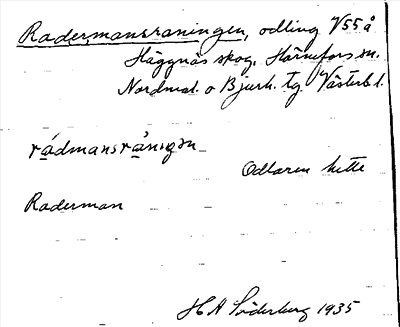 Radermansraningen, odling V55å
Häggnäs skog, Hörnefors sn.
Nordmal. o Bjurh. tg. Västerb. l.
rádmansrånıŋɘn
Odlaren hette
Raderman
H A Söderberg 1935